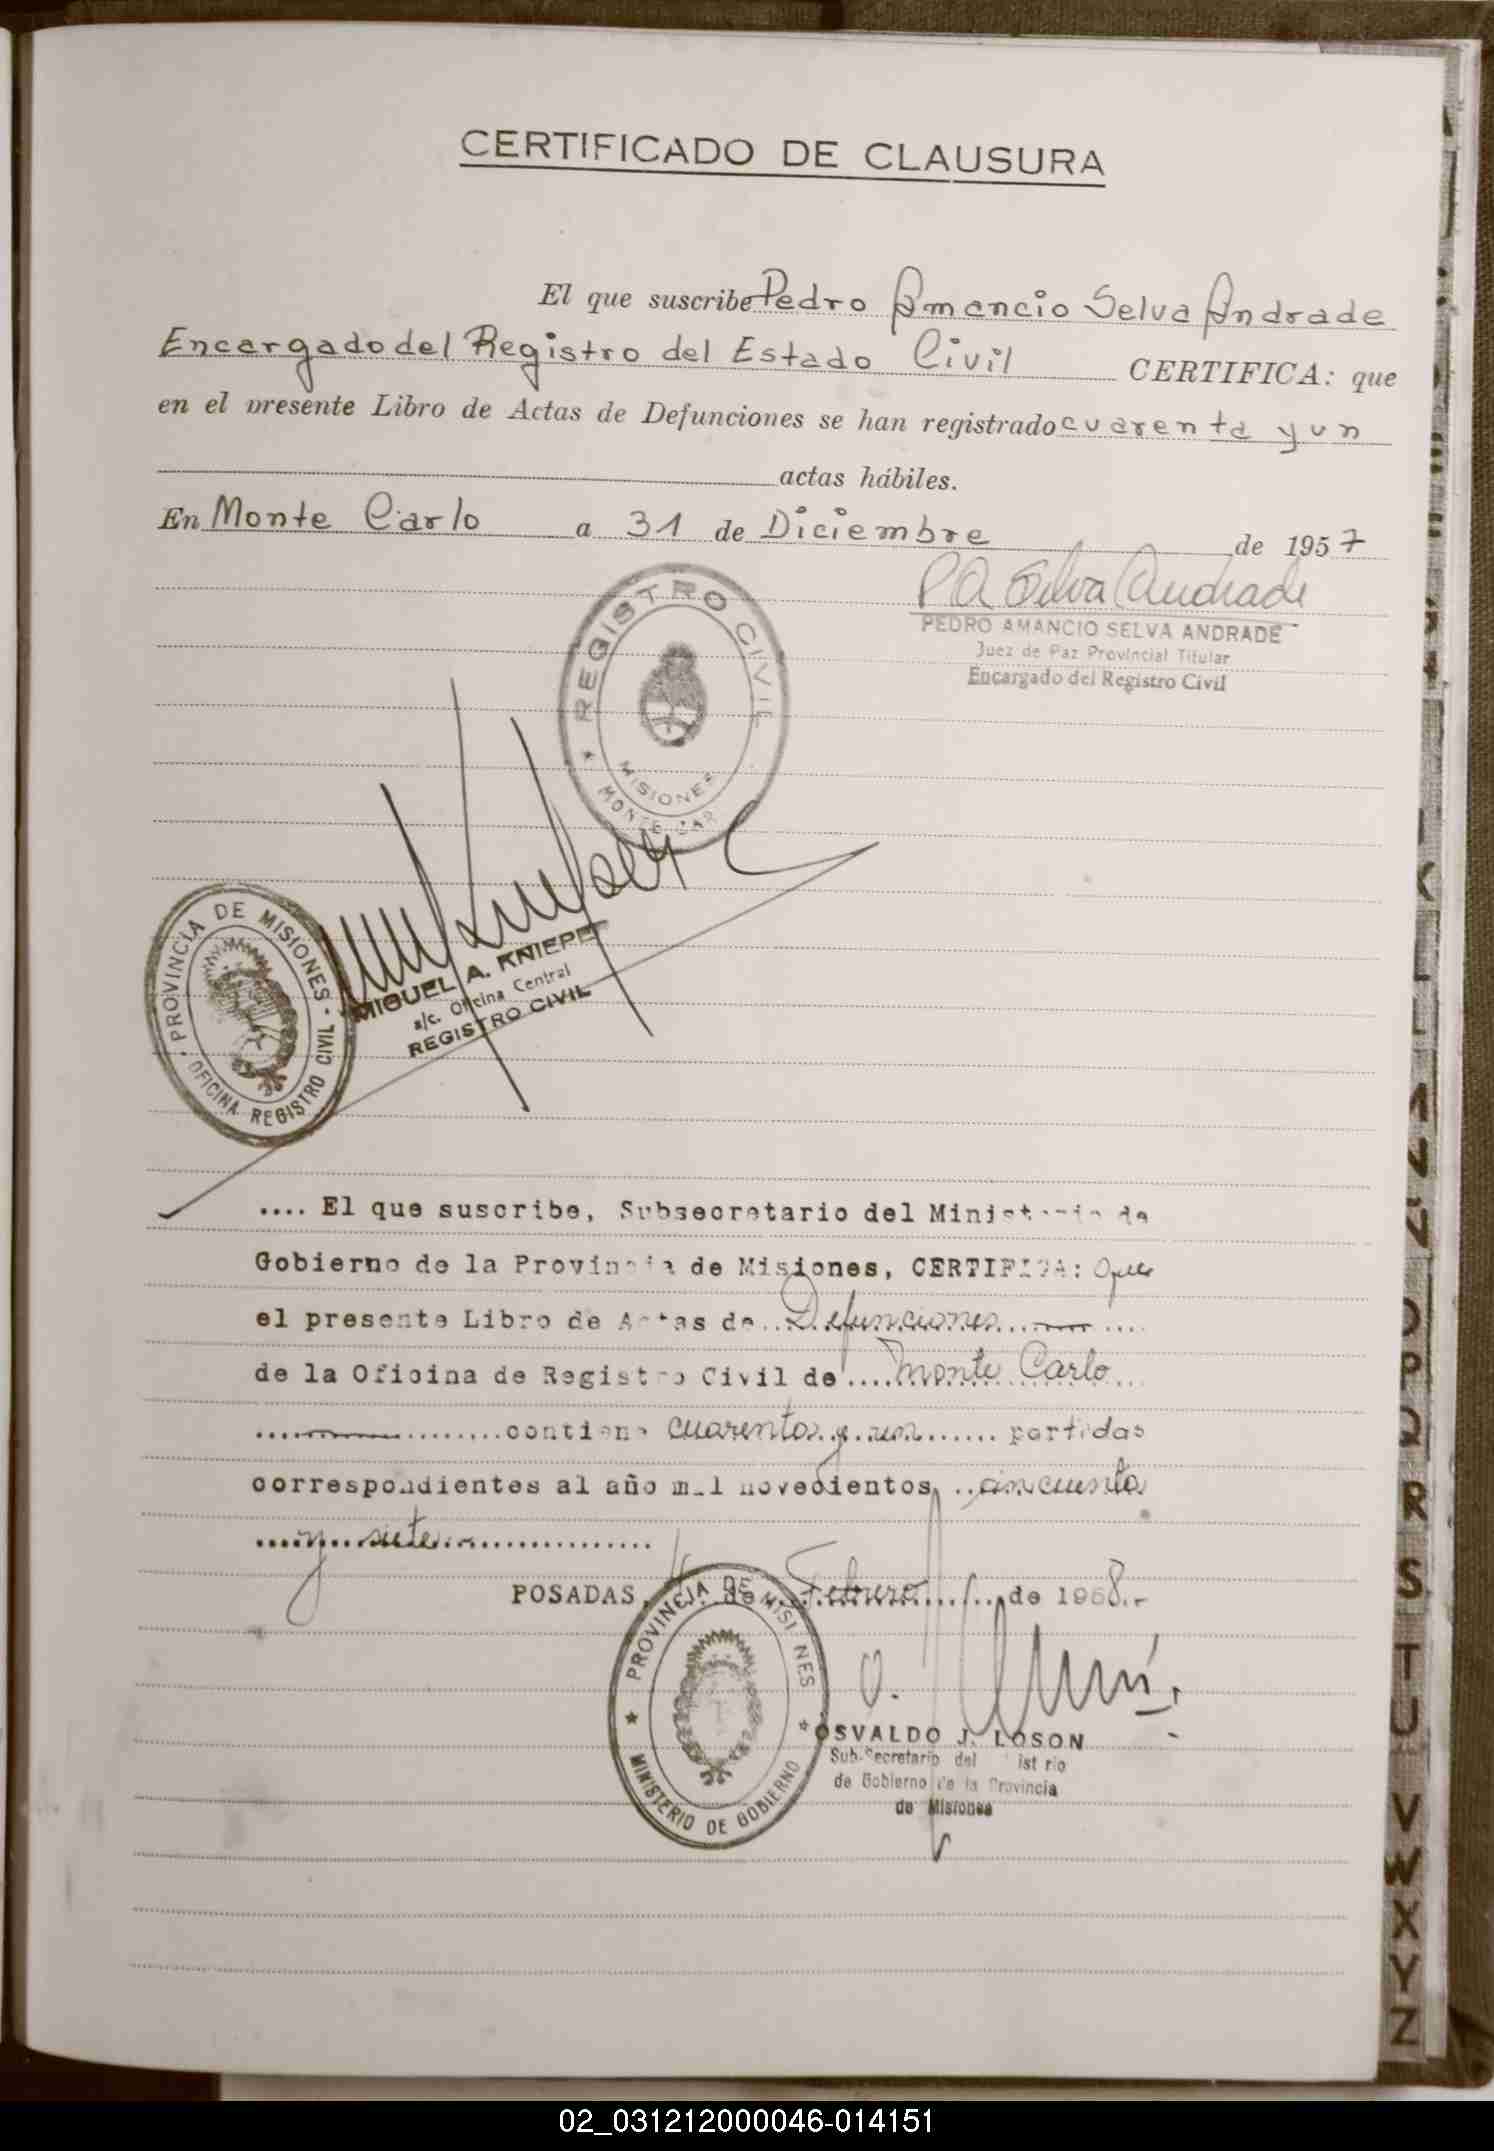 CERTIFICADO DE CLAUSURA
El que suscribe Pedro Amancio Selva Andrade
Encargado del Registro del Estado Civil CERTIFICA: que
en el presente Libro de Actas de Defunciones se han registrado cuarenta y un
actas hábiles.
En Monte Carlo a 31 de Diciembre de 1957
P A Selva Andrade
PEDRO AMANCIO SELVA ANDRADE
Juez de Paz Provincial Titular
Encargado del Registro Civil
REGISTRO CIVIL
MISIONES
MONTE CAR
PROVINCIA DE MISIONES
OFICINA REGISTRO CIVIL
MIGUEL A. KNIEPE
a/c. Oficina Central
REGISTRO CIVIL
.... El que suscribe, Subsecretario del Ministerio de
Gobierno de la Provincia de Misiones, CERTIFICA: Que
el presente Libro de Actas de Defunciones
de la Oficina de Registro Civil de Monte Carlo
contiene cuarenta y un partidas
correspondientes al año mil novecientos, cincuenta
y siete
POSADAS, de Febrero de 1968.-
PROVINCIA DE MISIONES
MINISTERIO DE GOBIERNO
OSVALDO J. LOSON
Sub-Secretario del ist rio
de Gobierno de la Provincia
de Misiones
K
L
N
O
P
Q
R
S
T
U
V
W
X
Y
Z
02_031212000046-014151